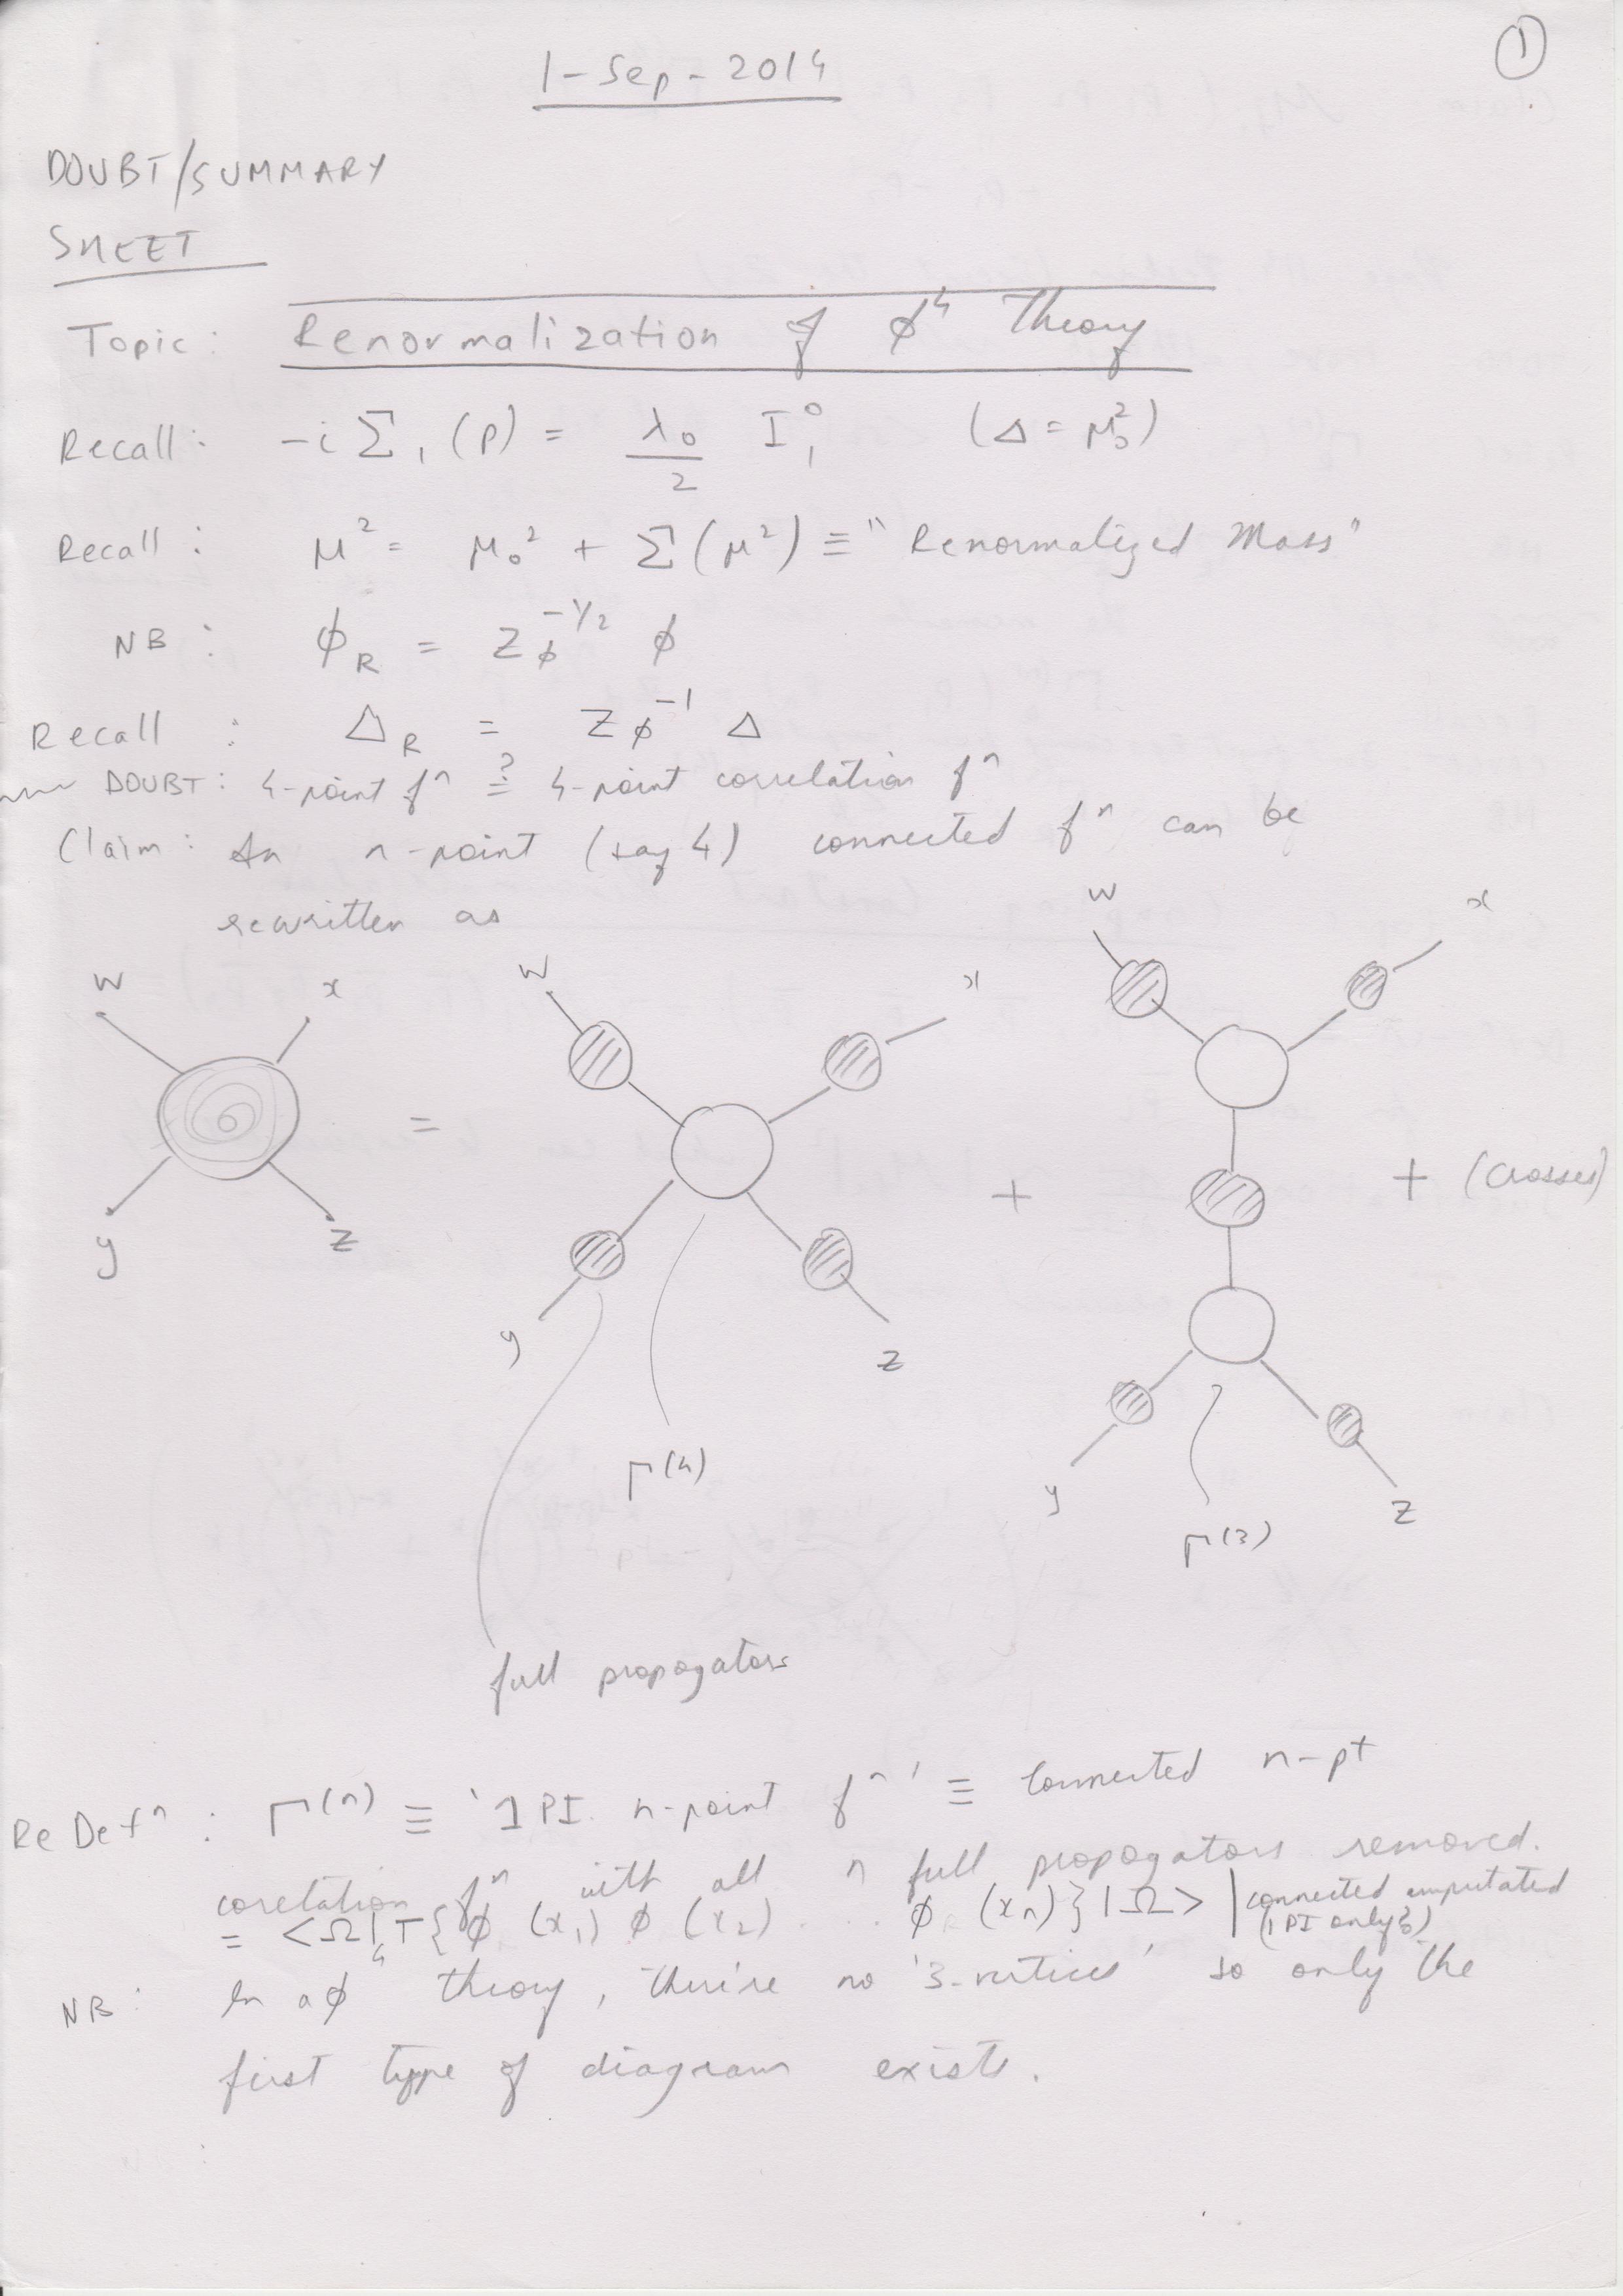 ①
1-Sep-2014
DOUBT/SUMMARY
SHEET
Topic: Renormalization of ϕ⁴ Theory
Recall: -i Σ₁ (p) = λ₀/2 I₁⁰ (Δ = μ₀²)
Recall: μ² = μ₀² + Σ(μ²) ≡ "Renormalized Mass"
NB: ϕ_R = Z_ϕ^{-1/2} ϕ
Recall: Δ_R = Z_ϕ^{-1} Δ
DOUBT: 4-point fⁿ ≟ 4-point correlation fⁿ
Claim: An n-point (say 4) connected fⁿ can be
rewritten as
w x y z = w x y z + w x y z + (Crosses)
Γ⁽⁴⁾
Γ⁽³⁾
full propogators
ReDefⁿ: Γ⁽ⁿ⁾ ≡ '1PI n-point fⁿ' ≡ Connected n-pt
corelation fⁿ with all n full propogators removed.
= <Ω|T{ϕ(x₁) ϕ(x₂) ... ϕ(xₙ)}|Ω> | connected amputated
(1PI only?)
NB: In a ϕ⁴ theory, there're no '3-vertices' so only the
first type of diagram exists.